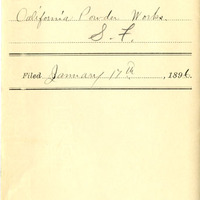 California Powder Works.
S. F.
Filed January 17th, 1896.